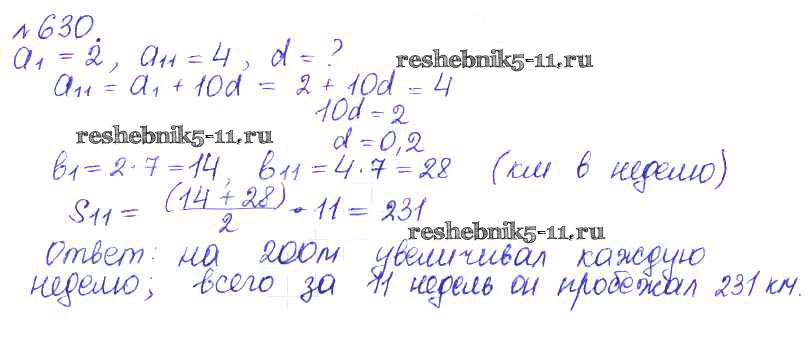 №630.
a₁ = 2, a₁₁ = 4, d = ?
reshebnik5-11.ru
a₁₁ = a₁ + 10d = 2 + 10d = 4
10d = 2
reshebnik5-11.ru
d = 0,2
b₁ = 2·7 = 14, b₁₁ = 4·7 = 28 (км в неделю)
S₁₁ = (14 + 28)/2 · 11 = 231
reshebnik5-11.ru
Ответ: на 200м увеличивал каждую
неделю; всего за 11 недель он пробежал 231 км.